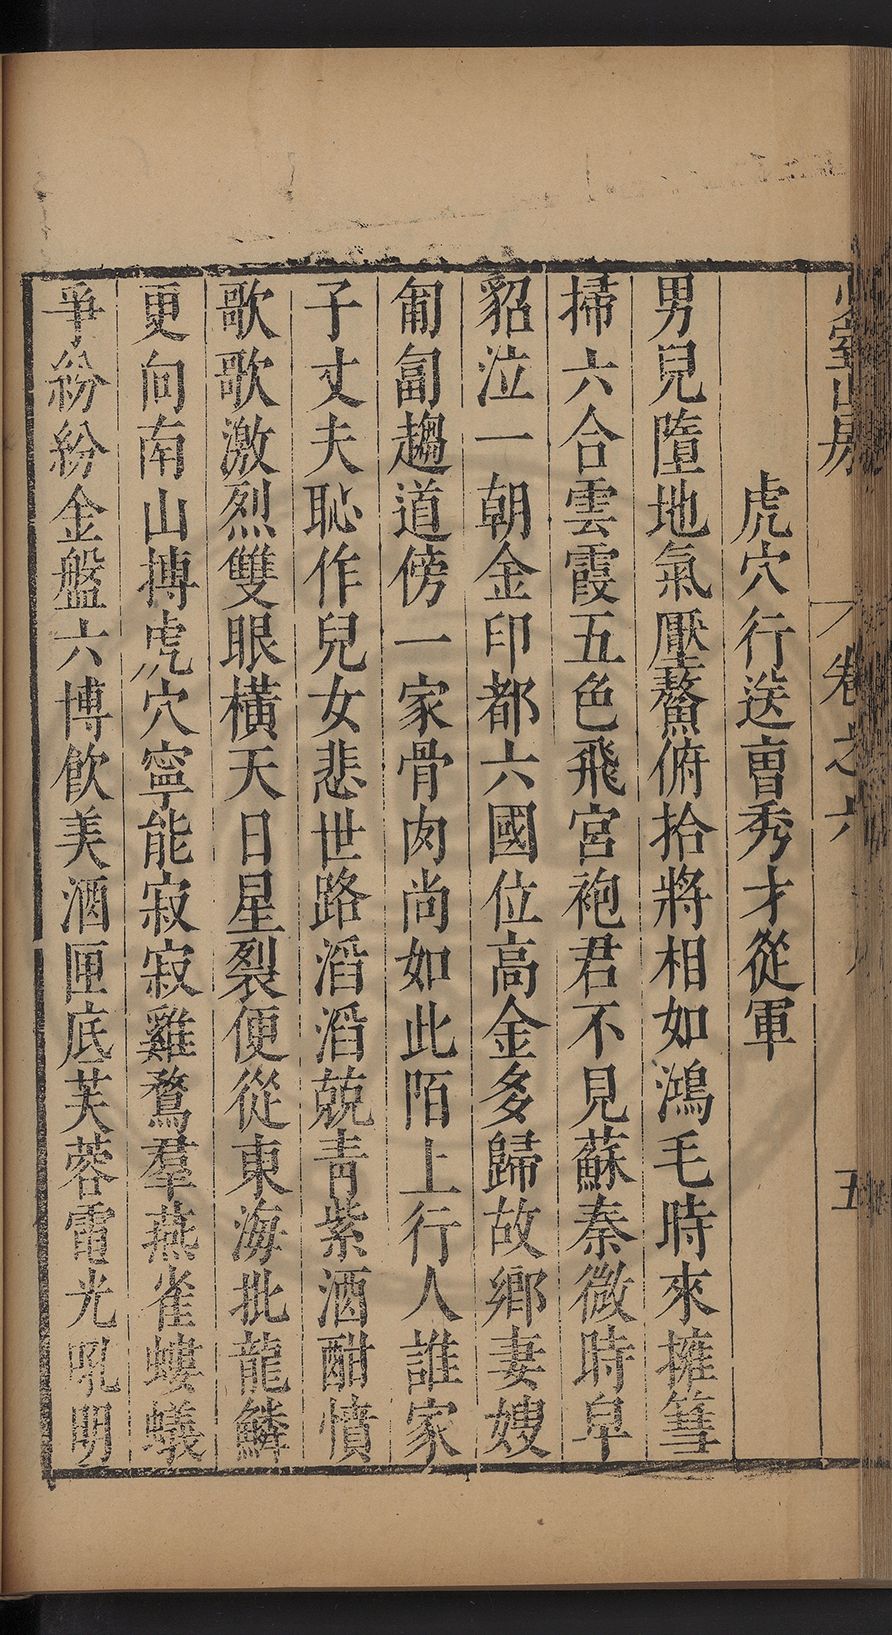 少室山房 卷之六 五
虎穴行送曹秀才從軍
男兒墮地氣壓鰲俯拾將相如鴻毛時來擁篲
掃六合雲霞五色飛宮袍君不見蘇秦微時皁
貂泣一朝金印都六國位高金多歸故鄉妻嫂
匍匐趨道傍一家骨肉尚如此陌上行人誰家
子丈夫恥作兒女悲世路滔滔競青紫酒酣憤
歌歌激烈雙眼橫天日星裂便從東海批龍鱗
更向南山摶虎穴寧能寂寂雞鶩羣燕雀螻蟻
爭紛紛金盤六博飲美酒匣底芙蓉電光吼明